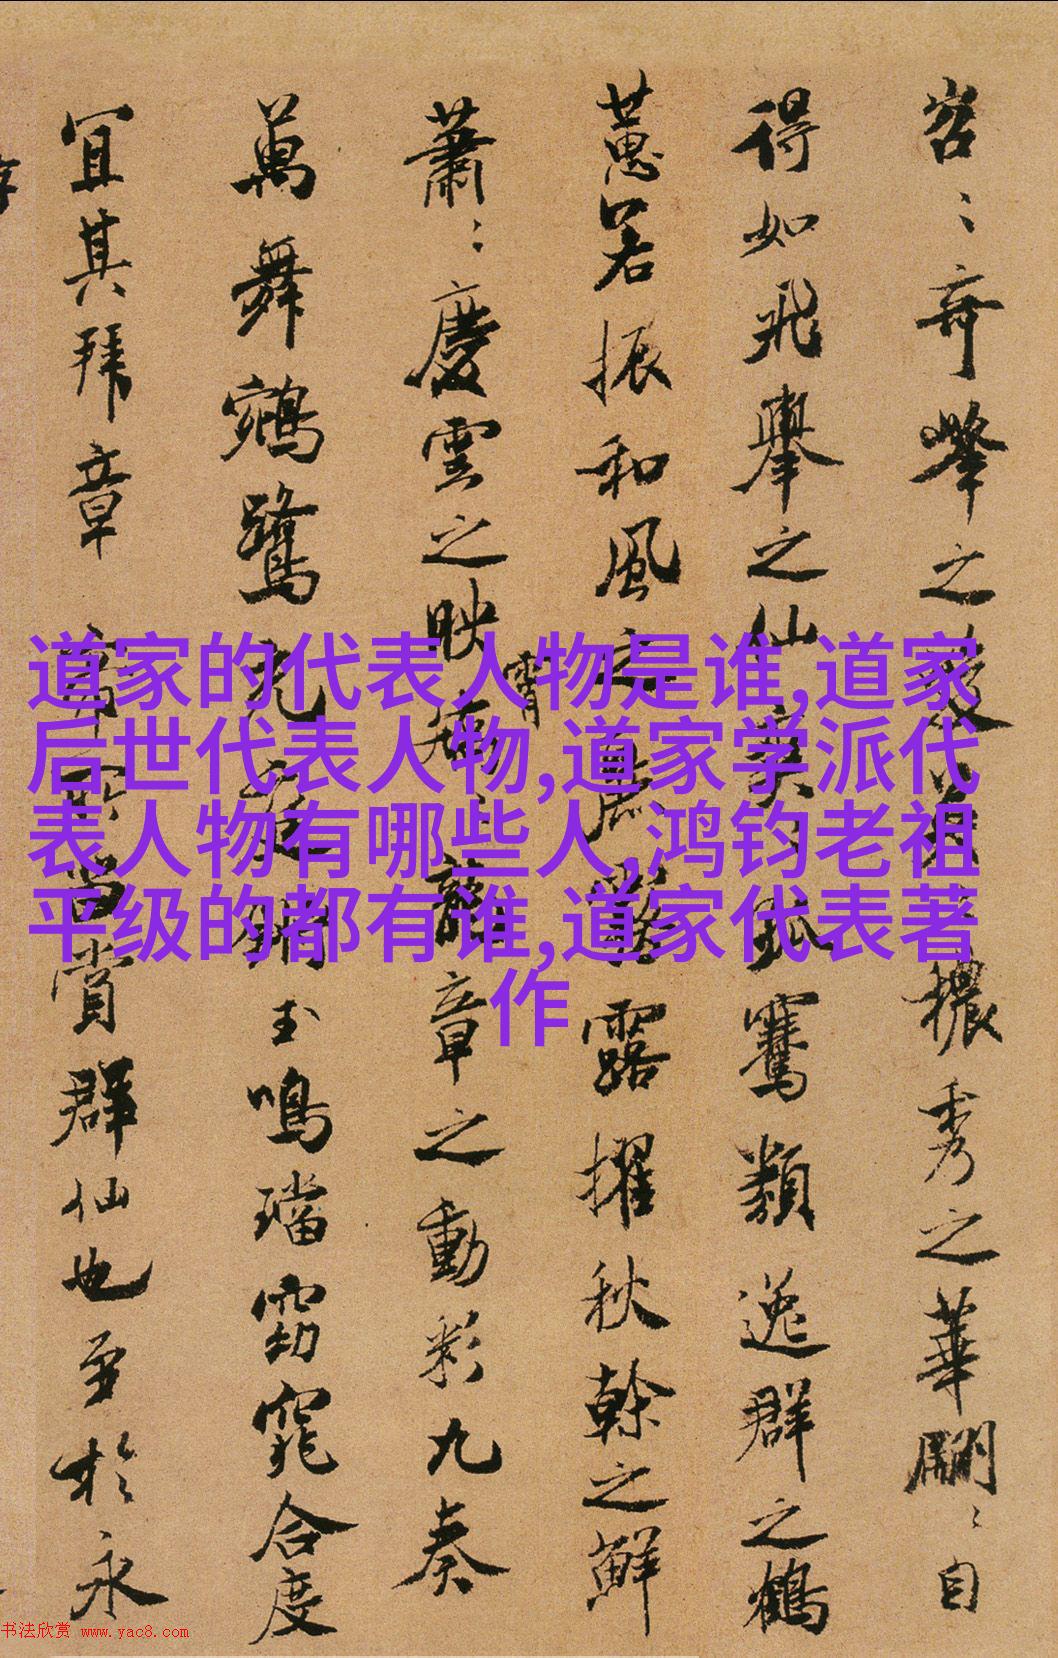 岧〻奇峰之
檂秀之華闢〻自
得如飛舉之仙
孤騫類逸群之鶴
蕙若振和風之
露擢秋幹之鮮
蕭〻慶雲之映
霄
龍章之動彩九奏
萬舞鵷鷺
玉鳴璫窈窕合度
宜其拜章
賞群仙也至於永
道家的代表人物是谁,道家
后世代表人物,道家学派代
表人物有哪些人,鸿钧老祖
平级的都有谁,道家代表著
作
书法欣赏 www.yac8.com